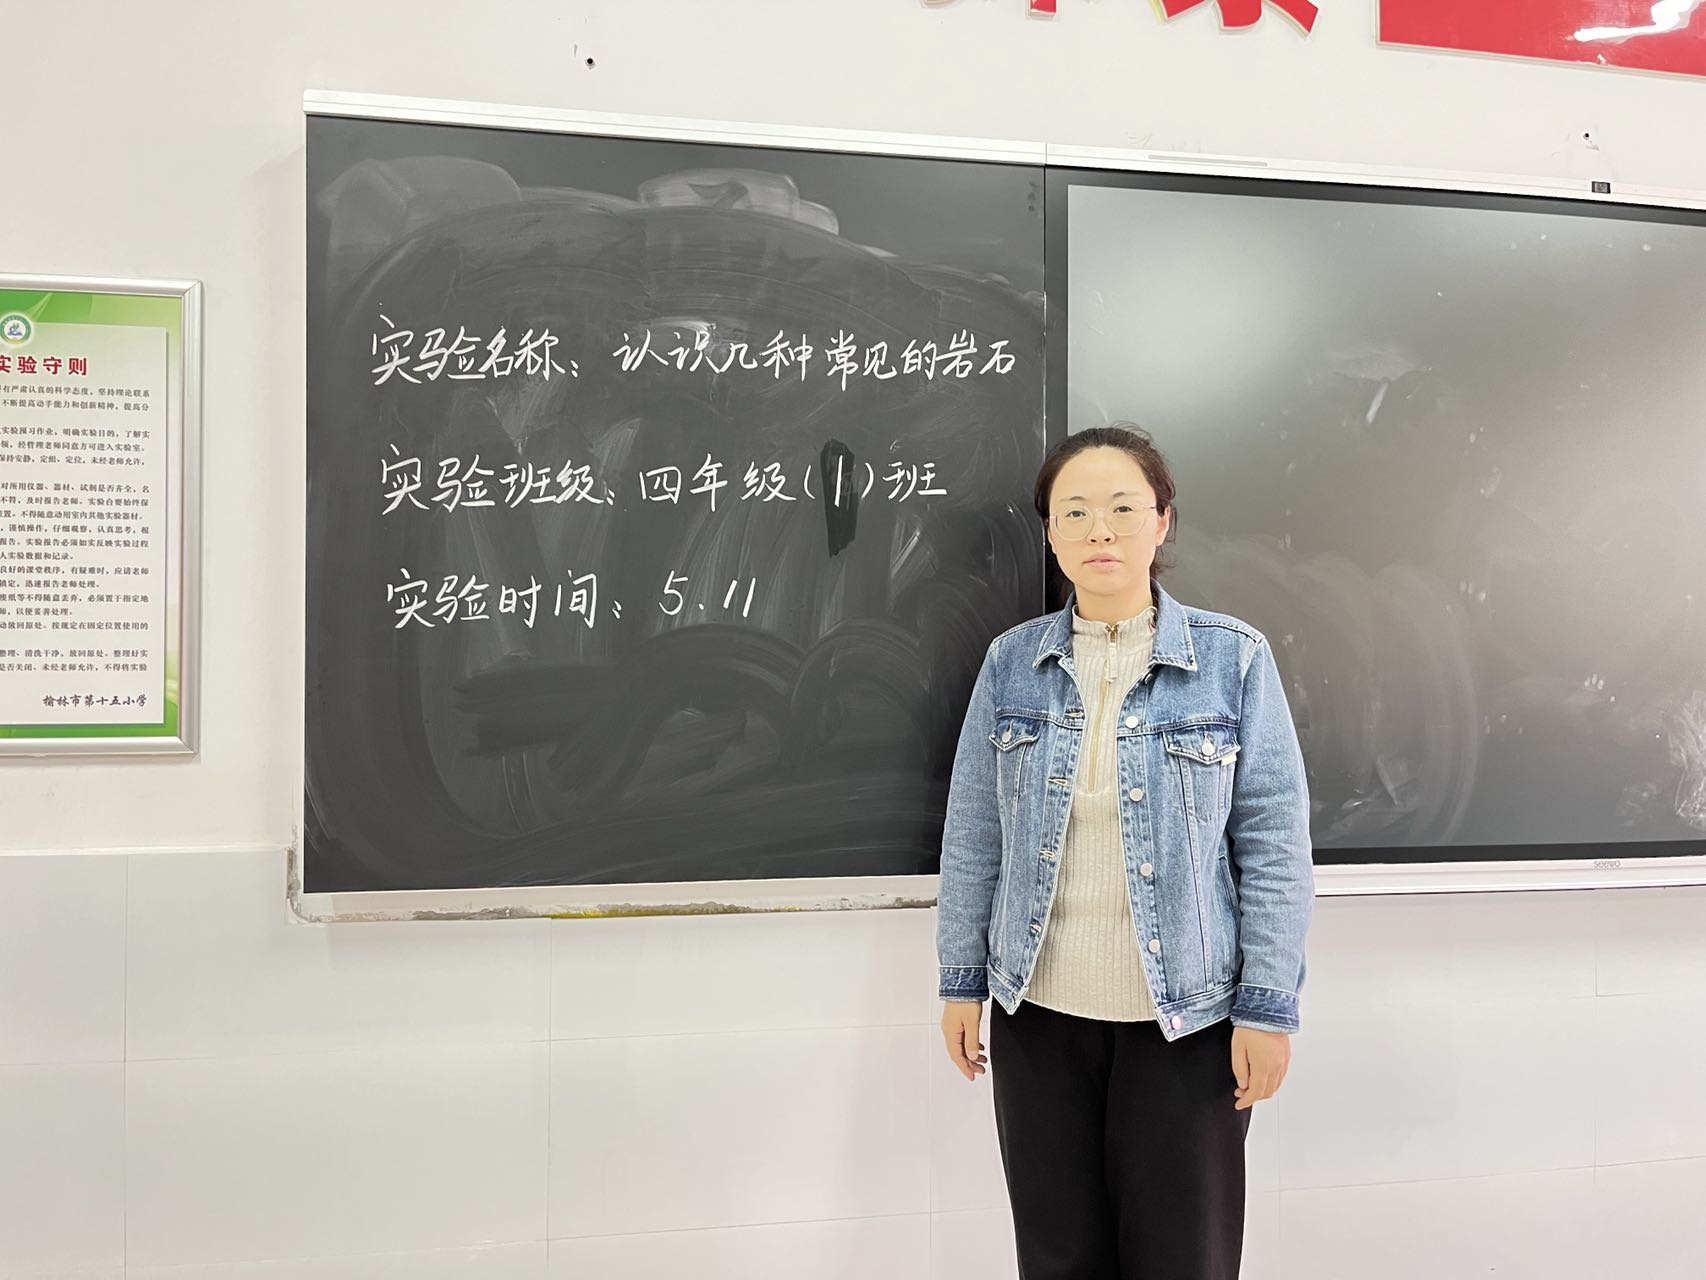 实验名称：认识几种常见的岩石
实验班级：四年级（1）班
实验时间：5.11
实验守则
有严肃认真的科学态度，坚持理论联系
不断提高动手能力和创新精神，提高分
实验预习作业，明确实验目的，了解实
领，经管理老师同意方可进入实验室。
保持安静，定组、定位，未经老师允许，
对所用仪器、器材、试剂是否齐全，名
不符，及时报告老师。实验台要始终保
置。不得随意动用室内其他实验器材。
，谨慎操作，仔细观察，认真思考，根
报告。实验报告必须如实反映实验过程
人实验数据和记录。
良好的课堂秩序，有疑难时，应请老师
镇定，迅速报告老师处理。
废纸等不得随意丢弃，必须置于指定地
师，以便妥善处理。
动放回原处。按规定在固定位置使用的
整理、清洗干净，放回原处。整理好实
是否关闭。未经老师允许，不得将实验
榆林市第十五小学
seewo